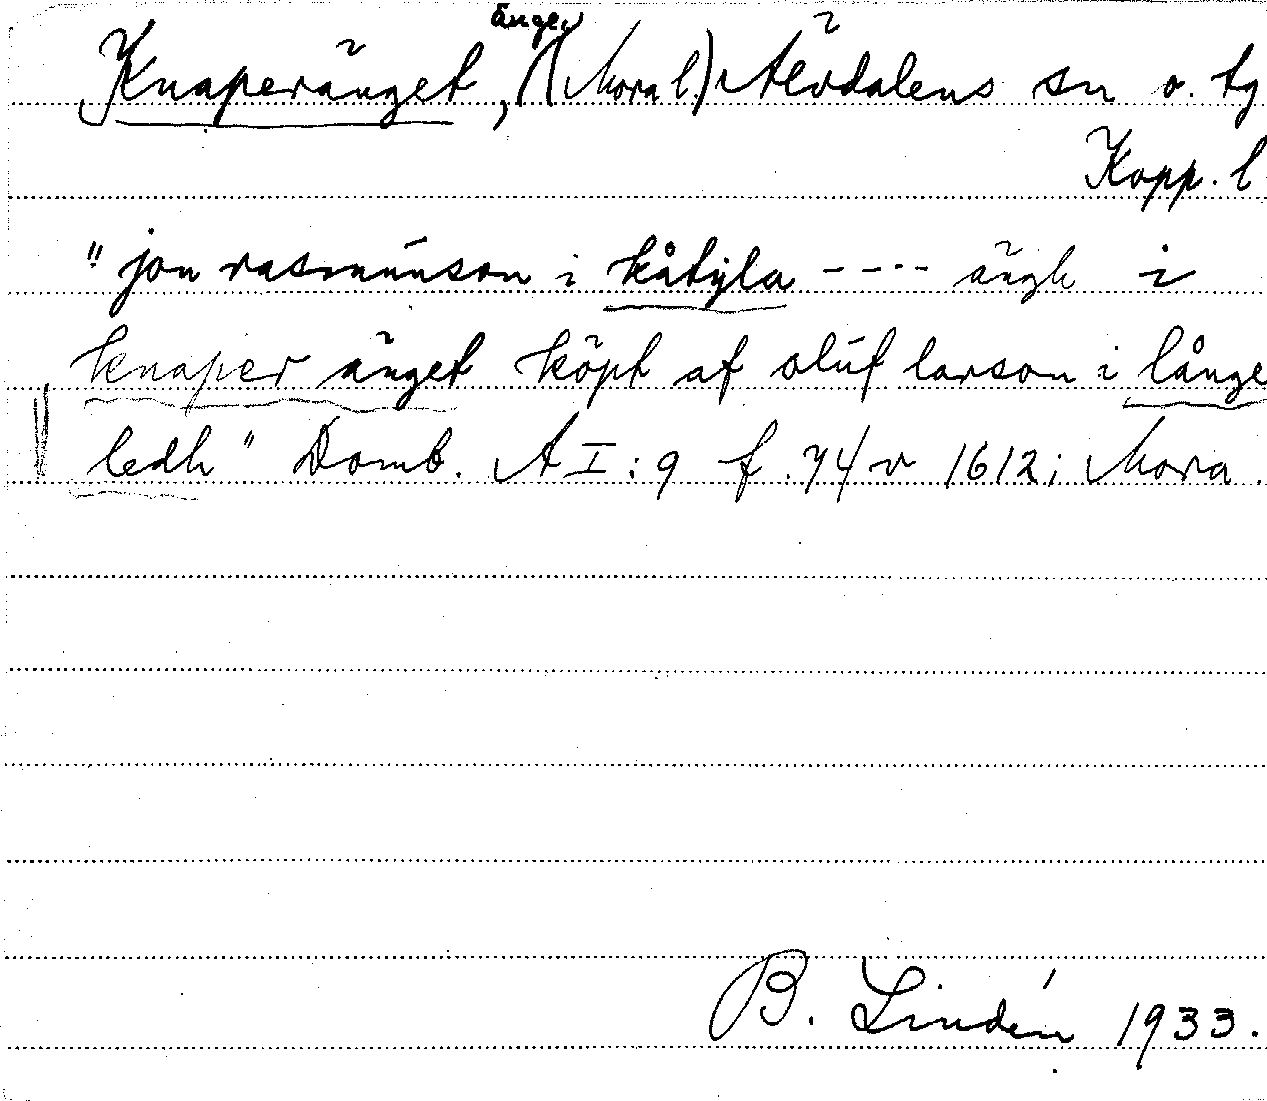 änger
Knaperänget, (Mora l.) Älvdalens sn o. tg
Kopp. l
"jon rasmunson i kåtyla ---- ängh i
knaper änget köpt af oluf larson i långe
ledh" Domb. A I:9 f. 74 v 1612; Mora.
B. Lindén 1933.